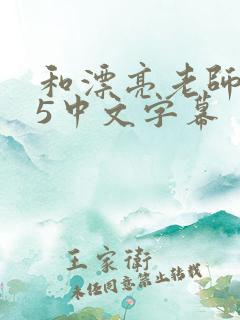 和漂亮老師
5中文字幕
王家衛
未经同意禁止转载